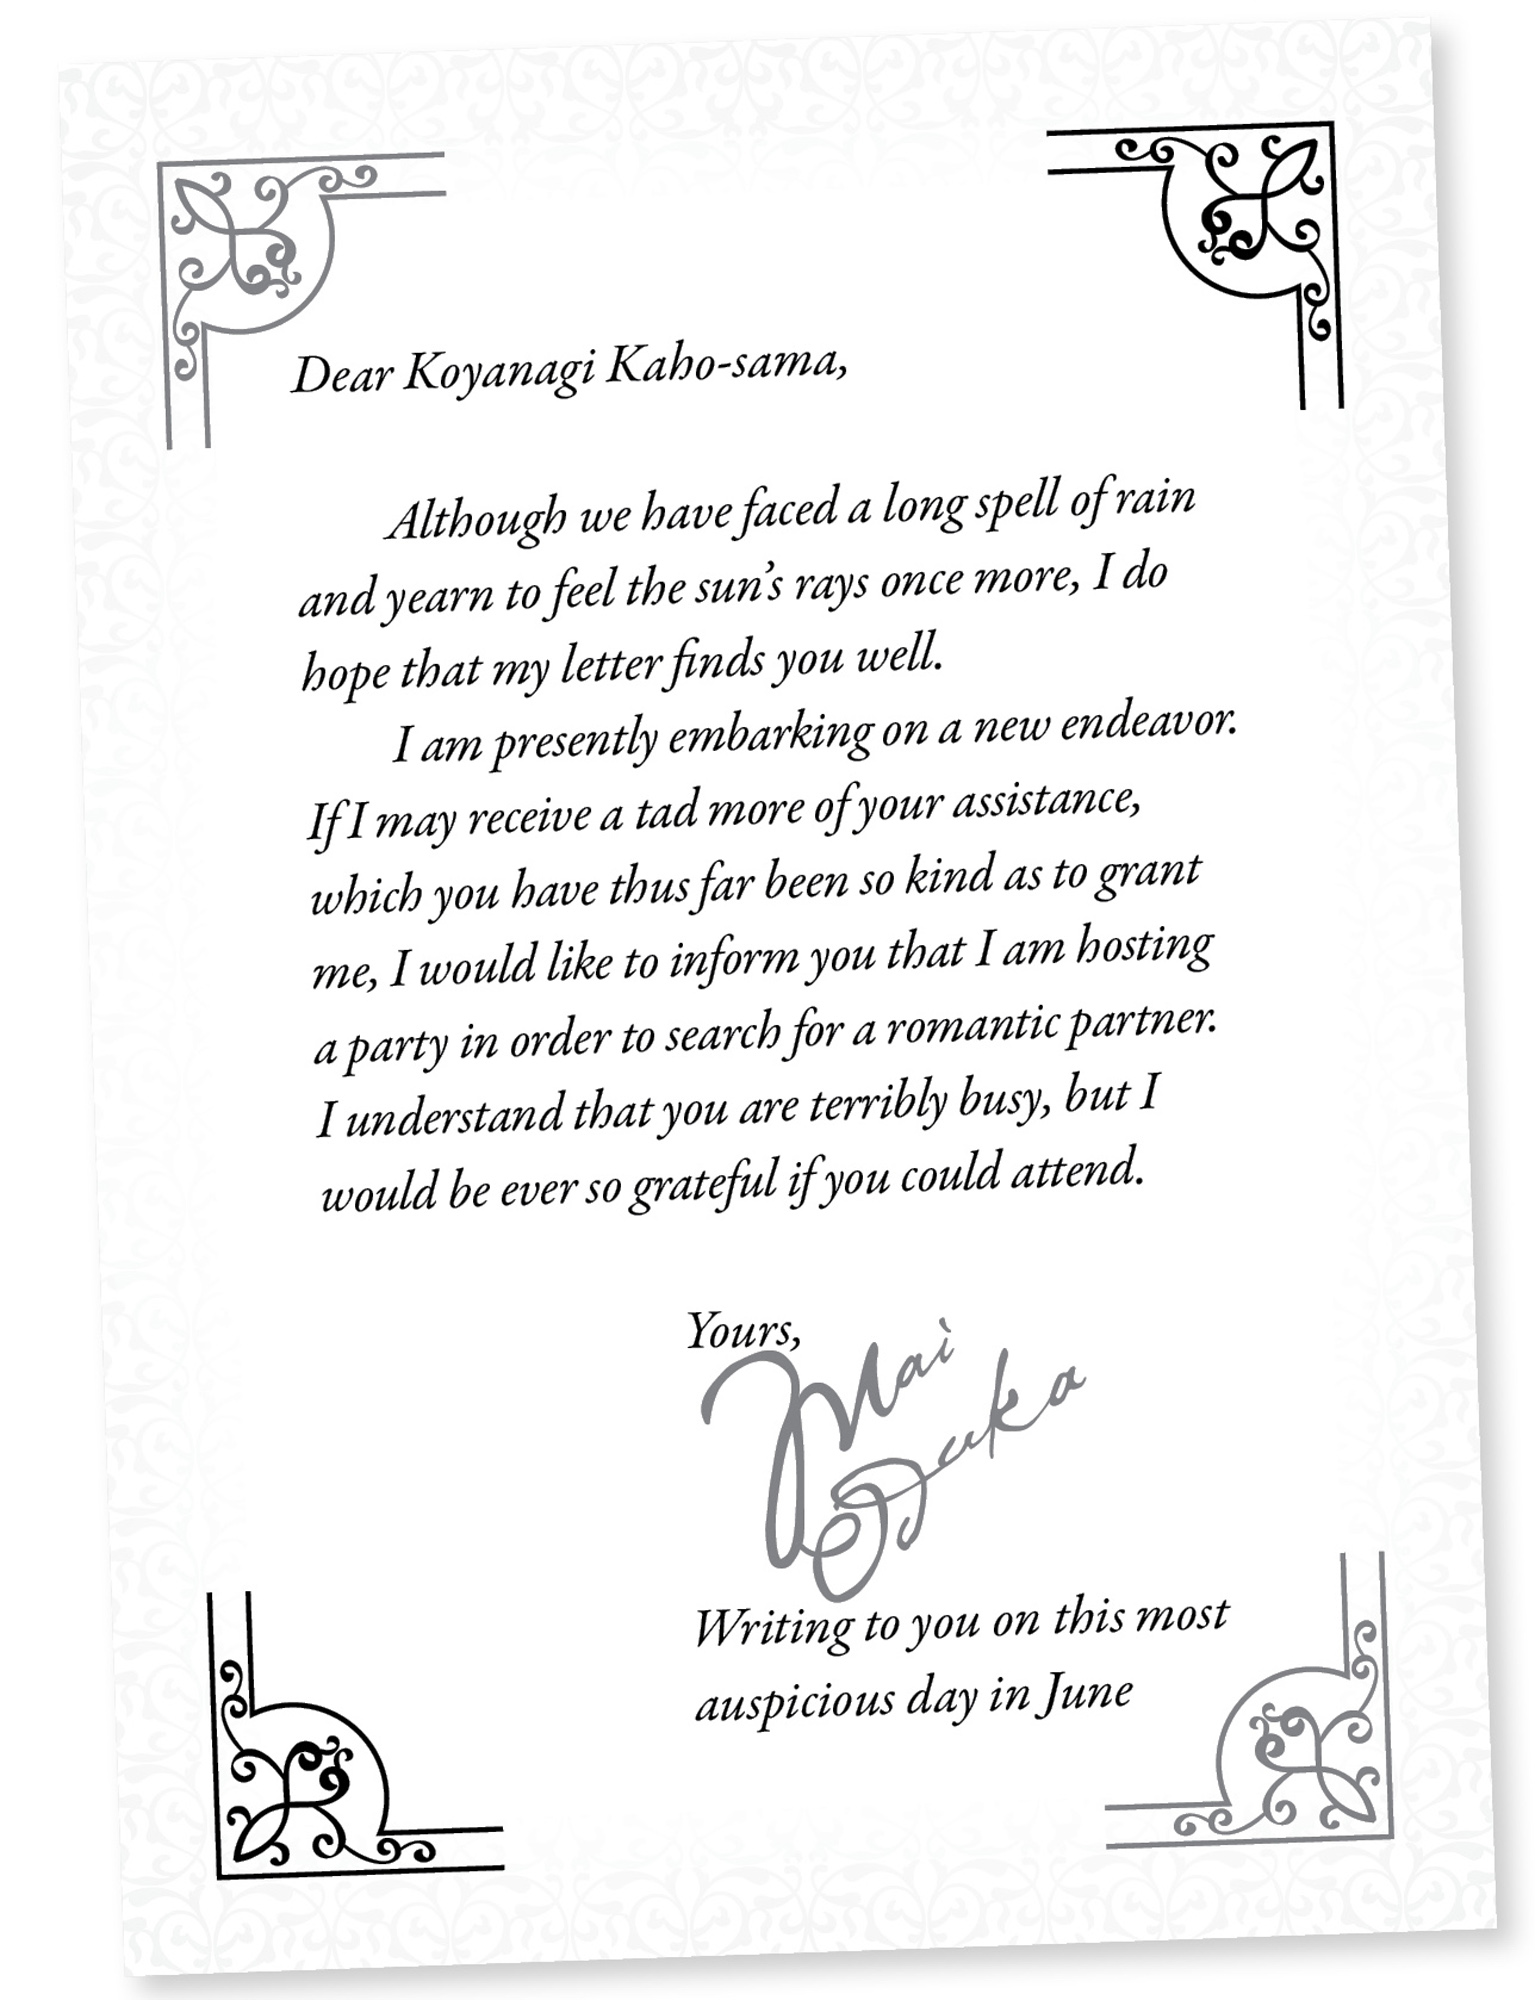 Dear Koyanagi Kaho-sama,
Although we have faced a long spell of rain
and yearn to feel the sun's rays once more, I do
hope that my letter finds you well.
I am presently embarking on a new endeavor.
If I may receive a tad more of your assistance,
which you have thus far been so kind as to grant
me, I would like to inform you that I am hosting
a party in order to search for a romantic partner.
I understand that you are terribly busy, but I
would be ever so grateful if you could attend.
Yours,
Mai
Writing to you on this most
auspicious day in June